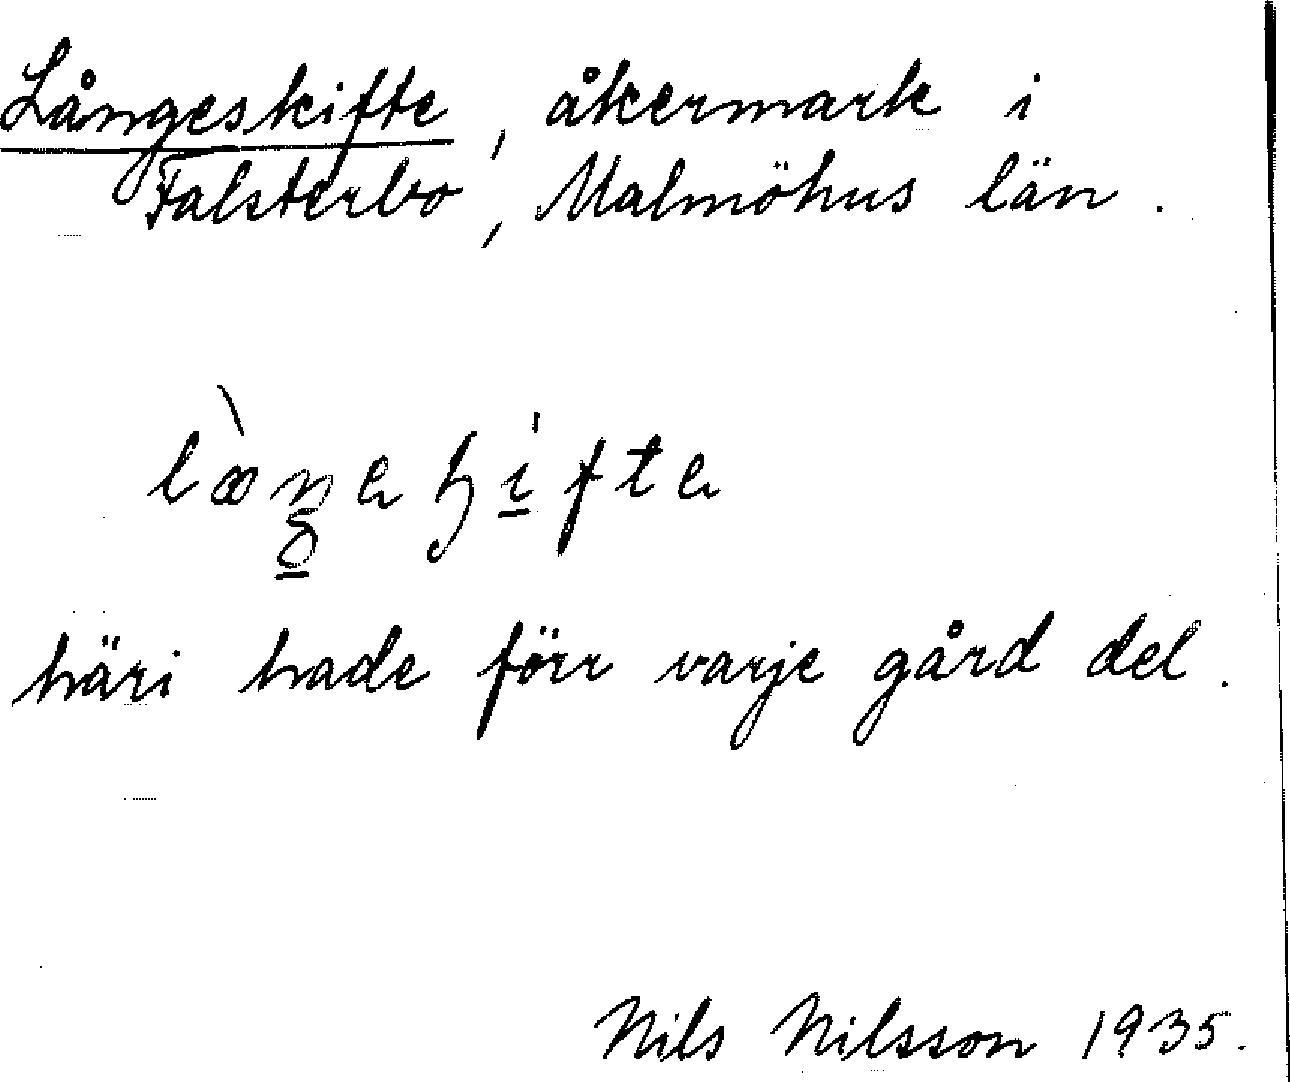 Långeskifte, åkermark i
Falsterbo, Malmöhus län.
làŋeɧi̱fte
häri hade förr varje gård del.
Nils Nilsson 1935.